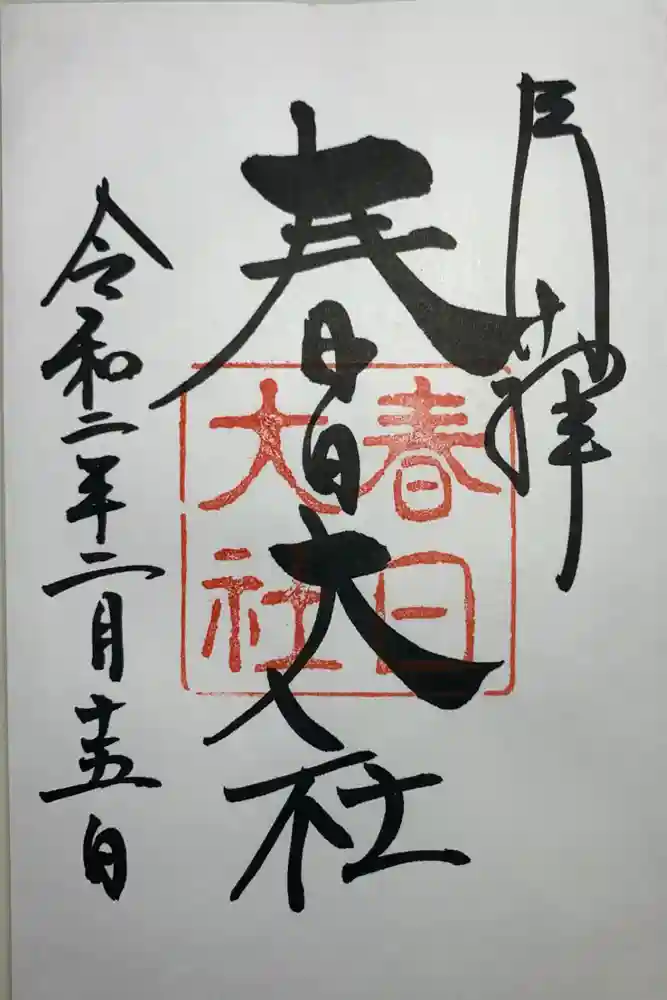 奉拝
春日大社
春日大社
令和二年二月十五日